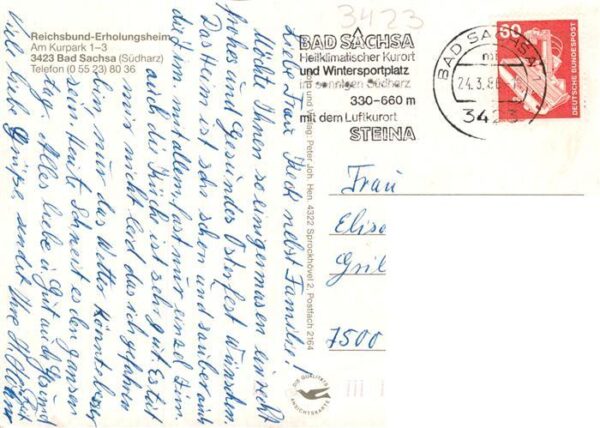 3423
Reichsbund-Erholungsheim
Am Kurpark 1–3
3423 Bad Sachsa (Südharz)
Telefon (0 55 23) 80 36
BAD SACHSA
Heilklimatischer Kurort
und Wintersportplatz
im sonnigen Südharz
330-660 m
mit dem Luftkurort
STEINA
BAD SACHSA 1
24.3.86
3423
60
DEUTSCHE BUNDESPOST
Liebe Frau Heck nebst Familie!
Möchte Ihnen so einigermasen ein recht
frohes und Gesundes Osterfest wünschen.
Das Heim ist sehr schön und sauber auch
die Zim. mit allem fast nur einzel Zim.
auch die Küch ist sehr gut. Es tut
mir nicht leid das ich gefahren
bin nur das Wetter könnte besser
sein. Heute Schneit es den ganzen
Tag. Alles liebe u. Gut auch Gesund
Viele liebe Grüße, sendet Ihre
Verlag: Peter Joh. Hen. 4322 Sprockhövel 2, Postfach 2164
Frau
Elise
Gril
7500
DIE QUALITÄTS
ANSICHTSKARTE